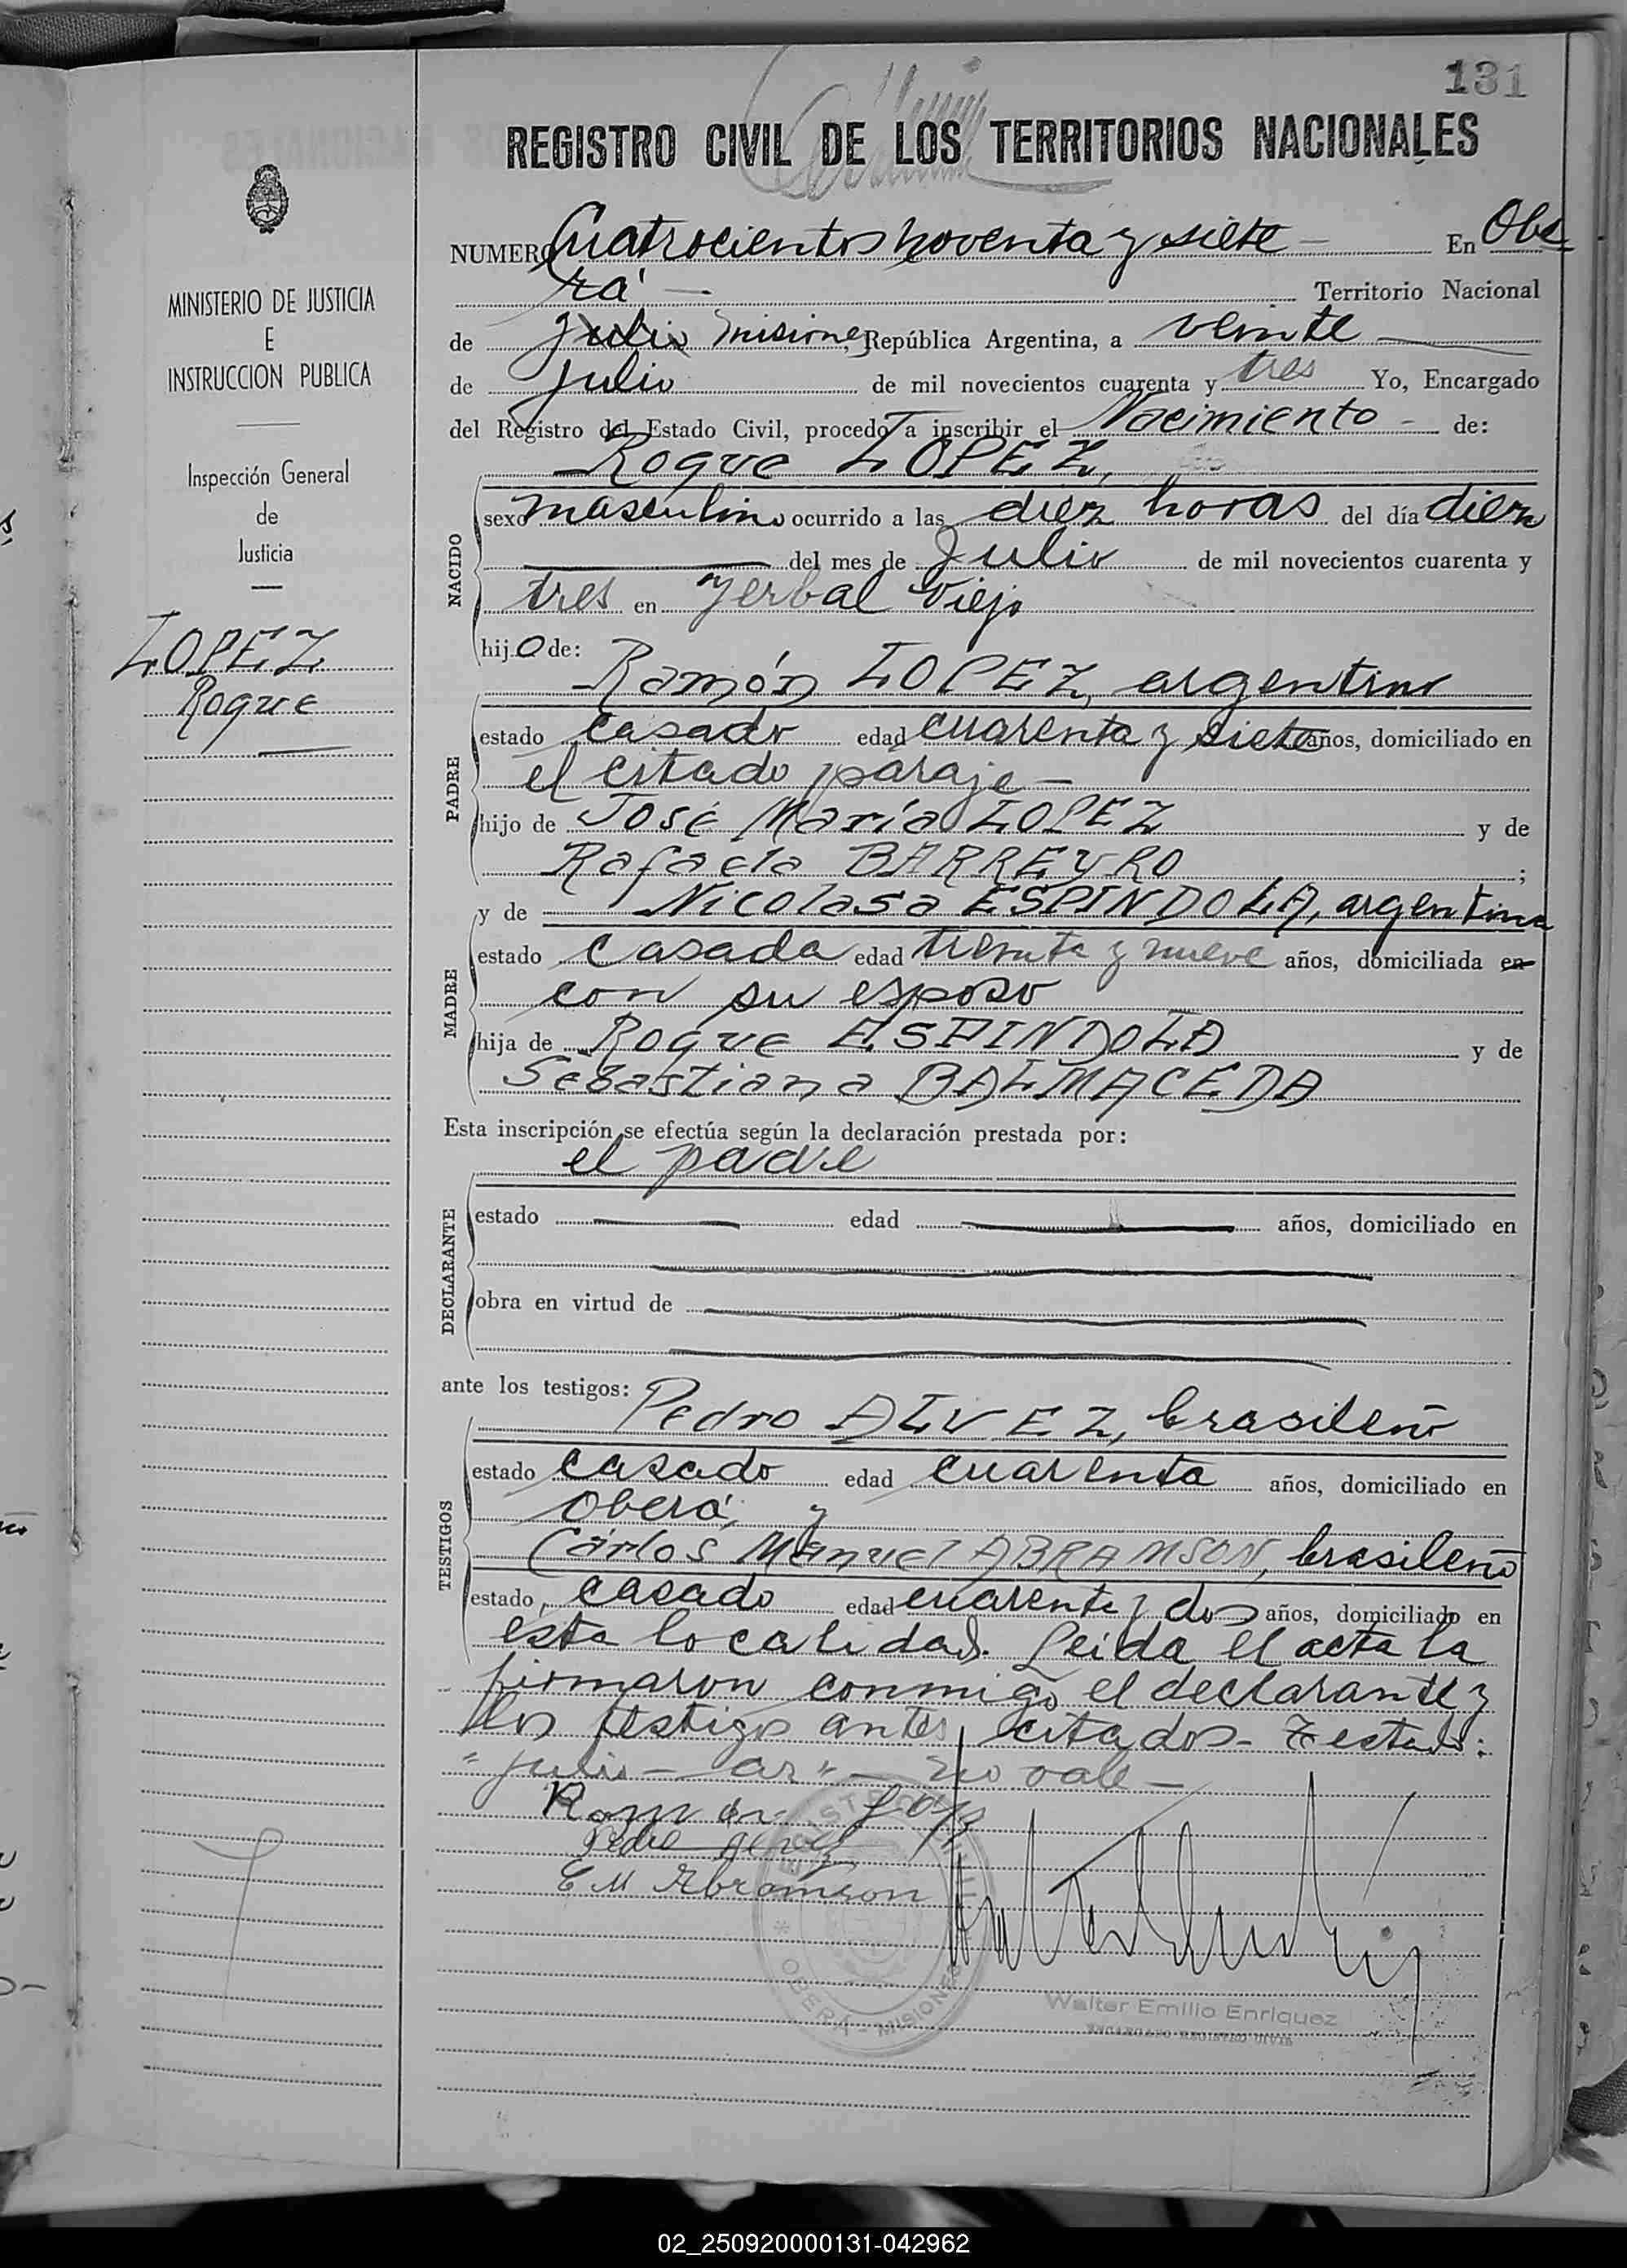 131
REGISTRO CIVIL DE LOS TERRITORIOS NACIONALES
NUMERO Cuatrocientos noventa y siete — En Obe
rá — Territorio Nacional
de julio Misiones, República Argentina, a veinte
de julio de mil novecientos cuarenta y tres Yo, Encargado
del Registro del Estado Civil, procedo a inscribir el Nacimiento - de:
Roque LOPEZ,
NACIDO
sexo masculino ocurrido a las diez horas del día diez
del mes de Julio de mil novecientos cuarenta y
tres en Yerbal Viejo
hijo de:
Ramón LOPEZ, argentino
PADRE
estado casado edad cuarenta y siete años, domiciliado en
el citado paraje —
hijo de José María LOPEZ y de
Rafaela BARREYRO ;
y de Nicolasa ESPINDOLA, argentina
MADRE
estado casada edad treinta y nueve años, domiciliada en
con su esposo
hija de Roque ESPINDOLA y de
Sebastiana BALMACEDA
Esta inscripción se efectúa según la declaración prestada por:
el padre
DECLARANTE
estado edad años, domiciliado en
obra en virtud de
ante los testigos:
Pedro ALVEZ, brasileño
TESTIGOS
estado casado edad cuarenta años, domiciliado en
Oberá, y
Cárlos Manuel ABRAMSON, brasileño
estado casado edad cuarenta y dos años, domiciliado en
esta localidad. Leida el acta la
firmaron conmigo el declarante y
los testigos antes citados - Testado:
"julio - ar" - no vale -
Ramón
C M Abramson
REGISTRO CIVIL
* OBERÁ - MISIONES
Walter Emilio Enriquez
ENCARGADO REGISTRO CIVIL
MINISTERIO DE JUSTICIA
E
INSTRUCCION PUBLICA
Inspección General
de
Justicia
LOPEZ
Roque
02_250920000131-042962